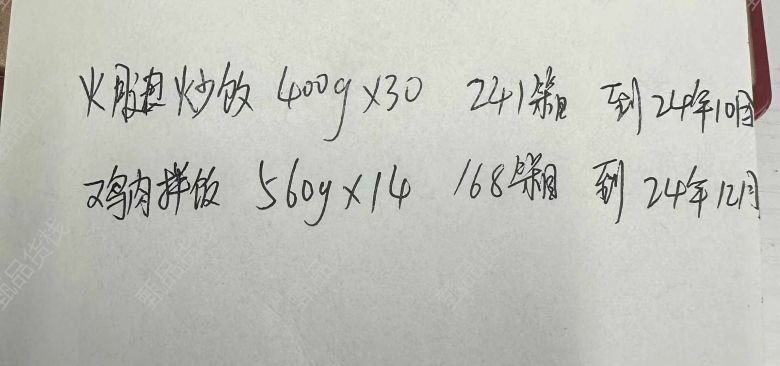 火腿炒饭 400g×30 241箱 到24年10月
鸡肉拌饭 560g×14 168箱 到24年12月
甄品货栈